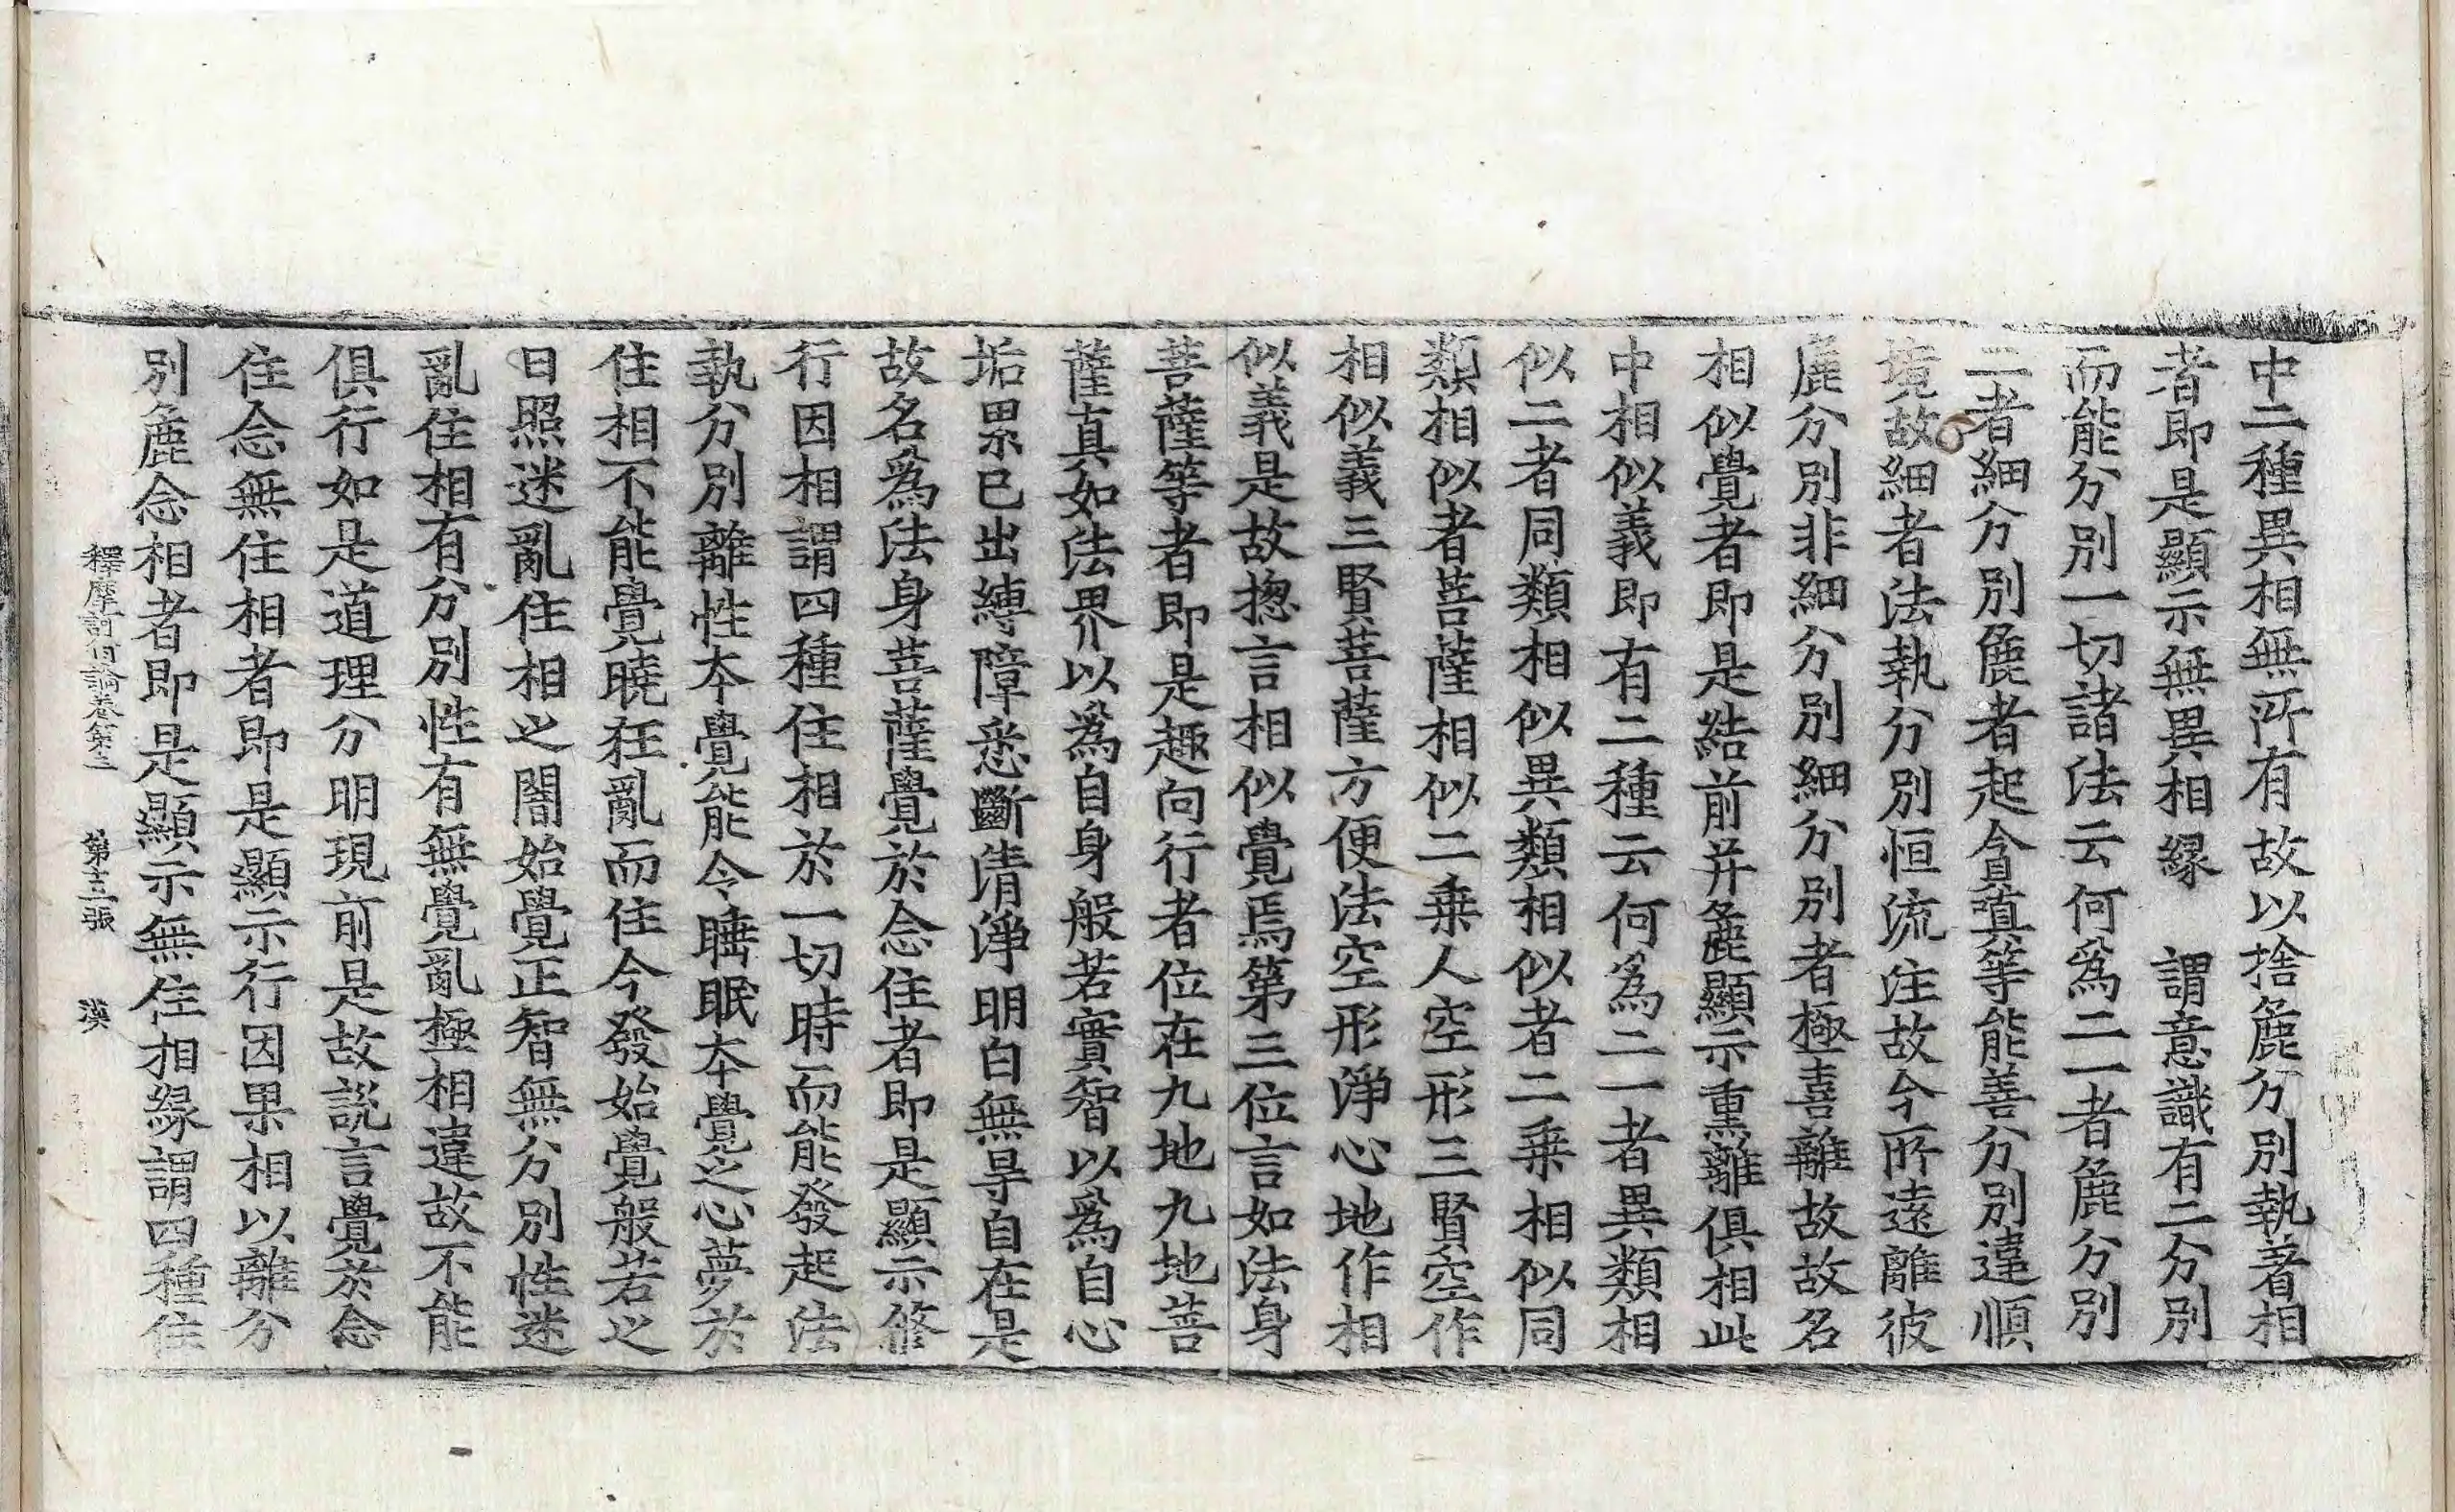 中二種異相無所有故以捨麁分別執著相
者即是顯示無異相縁　謂意識有二分別
而能分別一切諸法云何爲二一者麁分別
二者細分別麁者起貪嗔等能善分別違順
境故細者法執分別恒流注故今所遠離彼
麁分別非細分別細分別者極喜離故故名
相似覺者即是結前并麁顯示重離俱相此
中相似義即有二種云何爲二一者異類相
似二者同類相似異類相似者二乗相似同
類相似者菩薩相似二乗人空形三賢空作
相似義三賢菩薩方便法空形淨心地作相
似義是故揔言相似覺焉第三位言如法身
菩薩等者即是趣向行者位在九地九地菩
薩真如法界以爲自身般若實智以爲自心
垢累已出縛障悉斷清淨明白無㝵自在是
故名爲法身菩薩覺於念住者即是顯示修
行因相謂四種住相於一切時而能發起法
執分別離性夲覺能令睡眠夲覺之心夢於
住相不能覺曉狂亂而住今發始覺般若之
日照迷亂住相之闇始覺正智無分別性迷
亂住相有分別性有無覺亂極相違故不能
俱行如是道理分明現前是故説言覺於念
住念無住相者即是顯示行因果相以離分
別麁念相者即是顯示無住相縁謂四種住
釋摩訶衍論卷第三　第十三張　漢